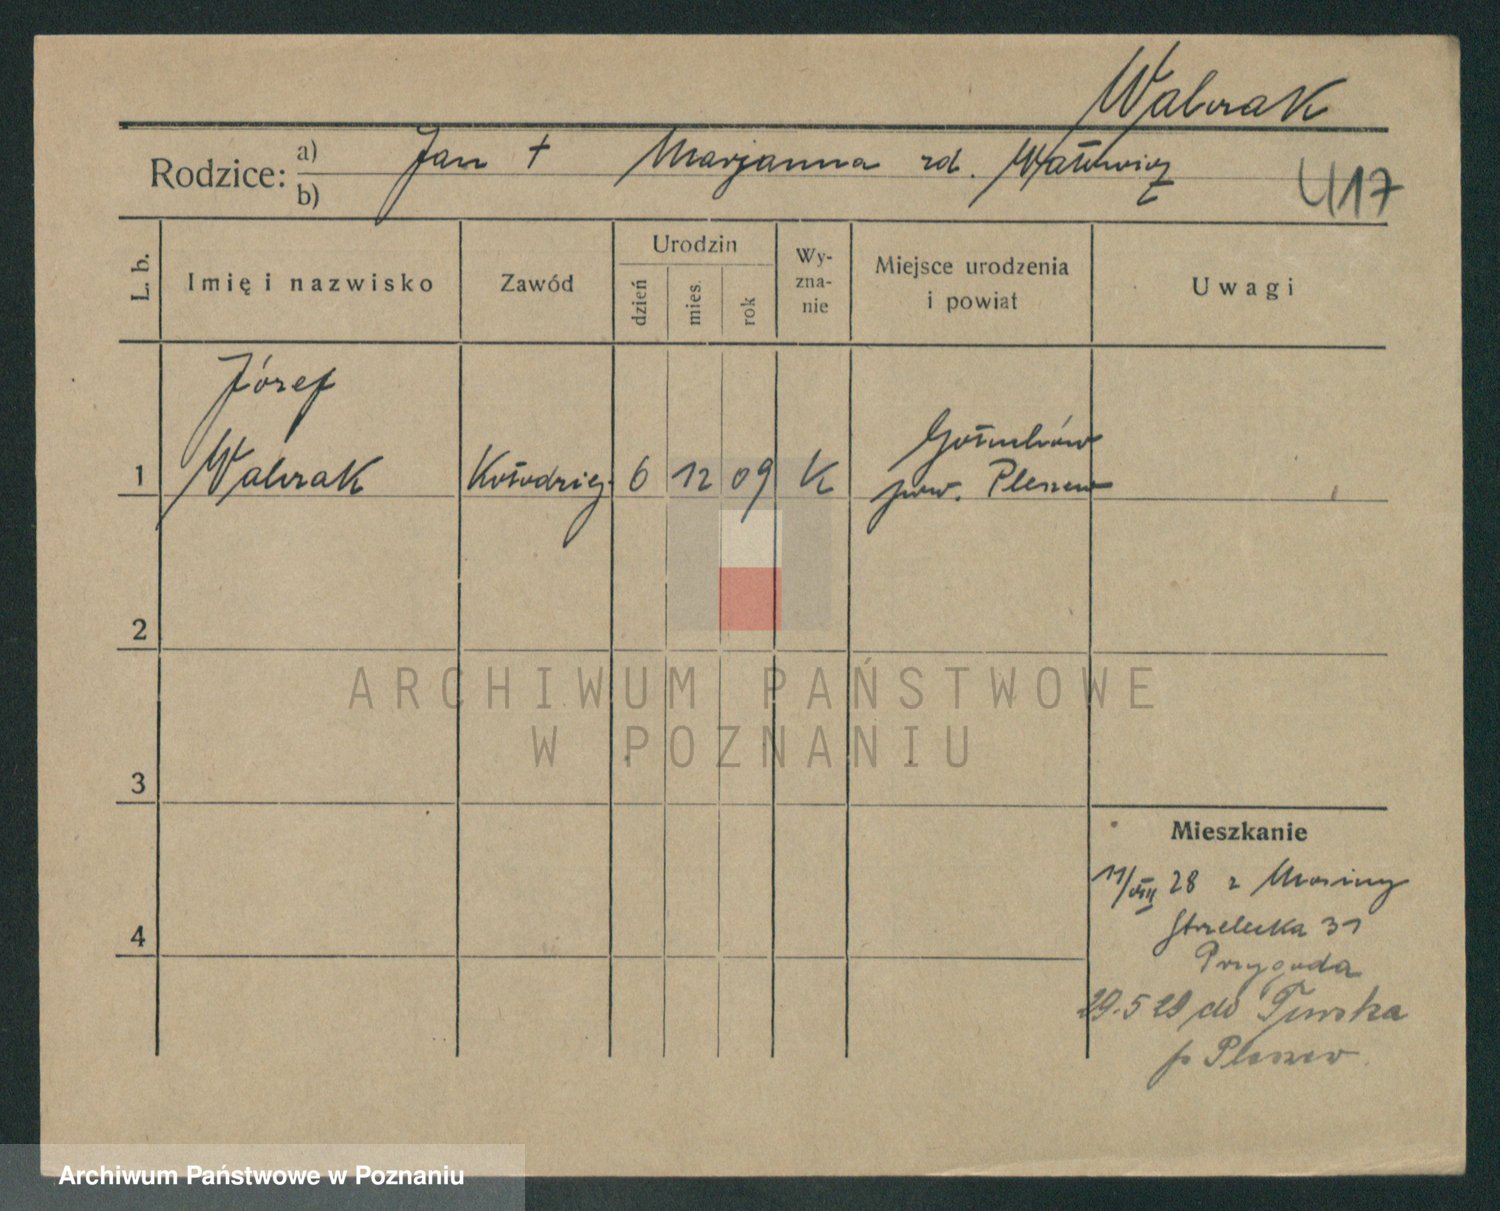 Walczak
Rodzice: a) Jan + Marjanna zd.
b)
417
L. b.
Imię i nazwisko
Zawód
Urodzin
dzień
mies.
rok
Wy-
zna-
nie
Miejsce urodzenia
i powiat
Uwagi
Józef
1 Walczak Kołodziej. 6 12 09 K Gołuchów
pow. Pleszew
2
3
4
ARCHIWUM PAŃSTWOWE
W POZNANIU
Mieszkanie
11/VIII 28 z Mosiny
Strzelecka 31
Przygoda
29.5 29 do Turska
p Pleszew
Archiwum Państwowe w Poznaniu